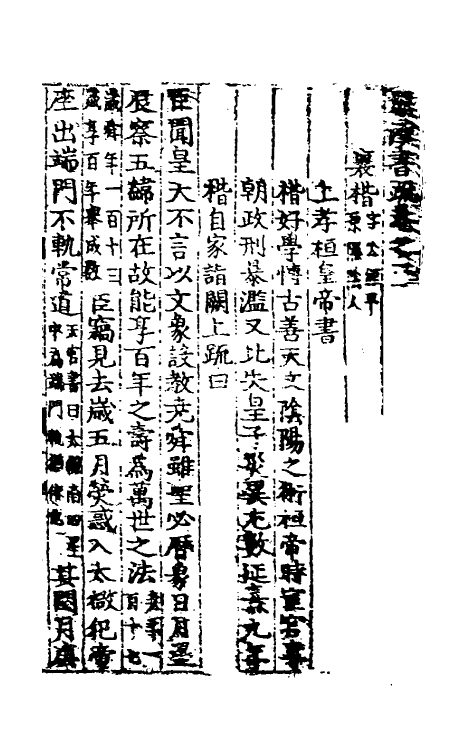 後漢書疏卷之
襄楷字公矩平原隰陰人
上孝桓皇帝書
楷好學博古善天文陰陽之術桓帝時宦官專
朝政刑暴濫又比失皇子災異尤數延熹九年
楷自家詣闕上疏曰
臣聞皇天不言以文象設教堯舜雖聖必曆象日月星
辰察五緯所在故能享百年之壽為萬世之法堯年一百十七
歲舜年一百十二歲享百年舉成數臣竊見去歲五月熒惑入太微犯帝
座出端門不軌常道天官書曰太微南四星中為端門軌猶依也其閏月庚